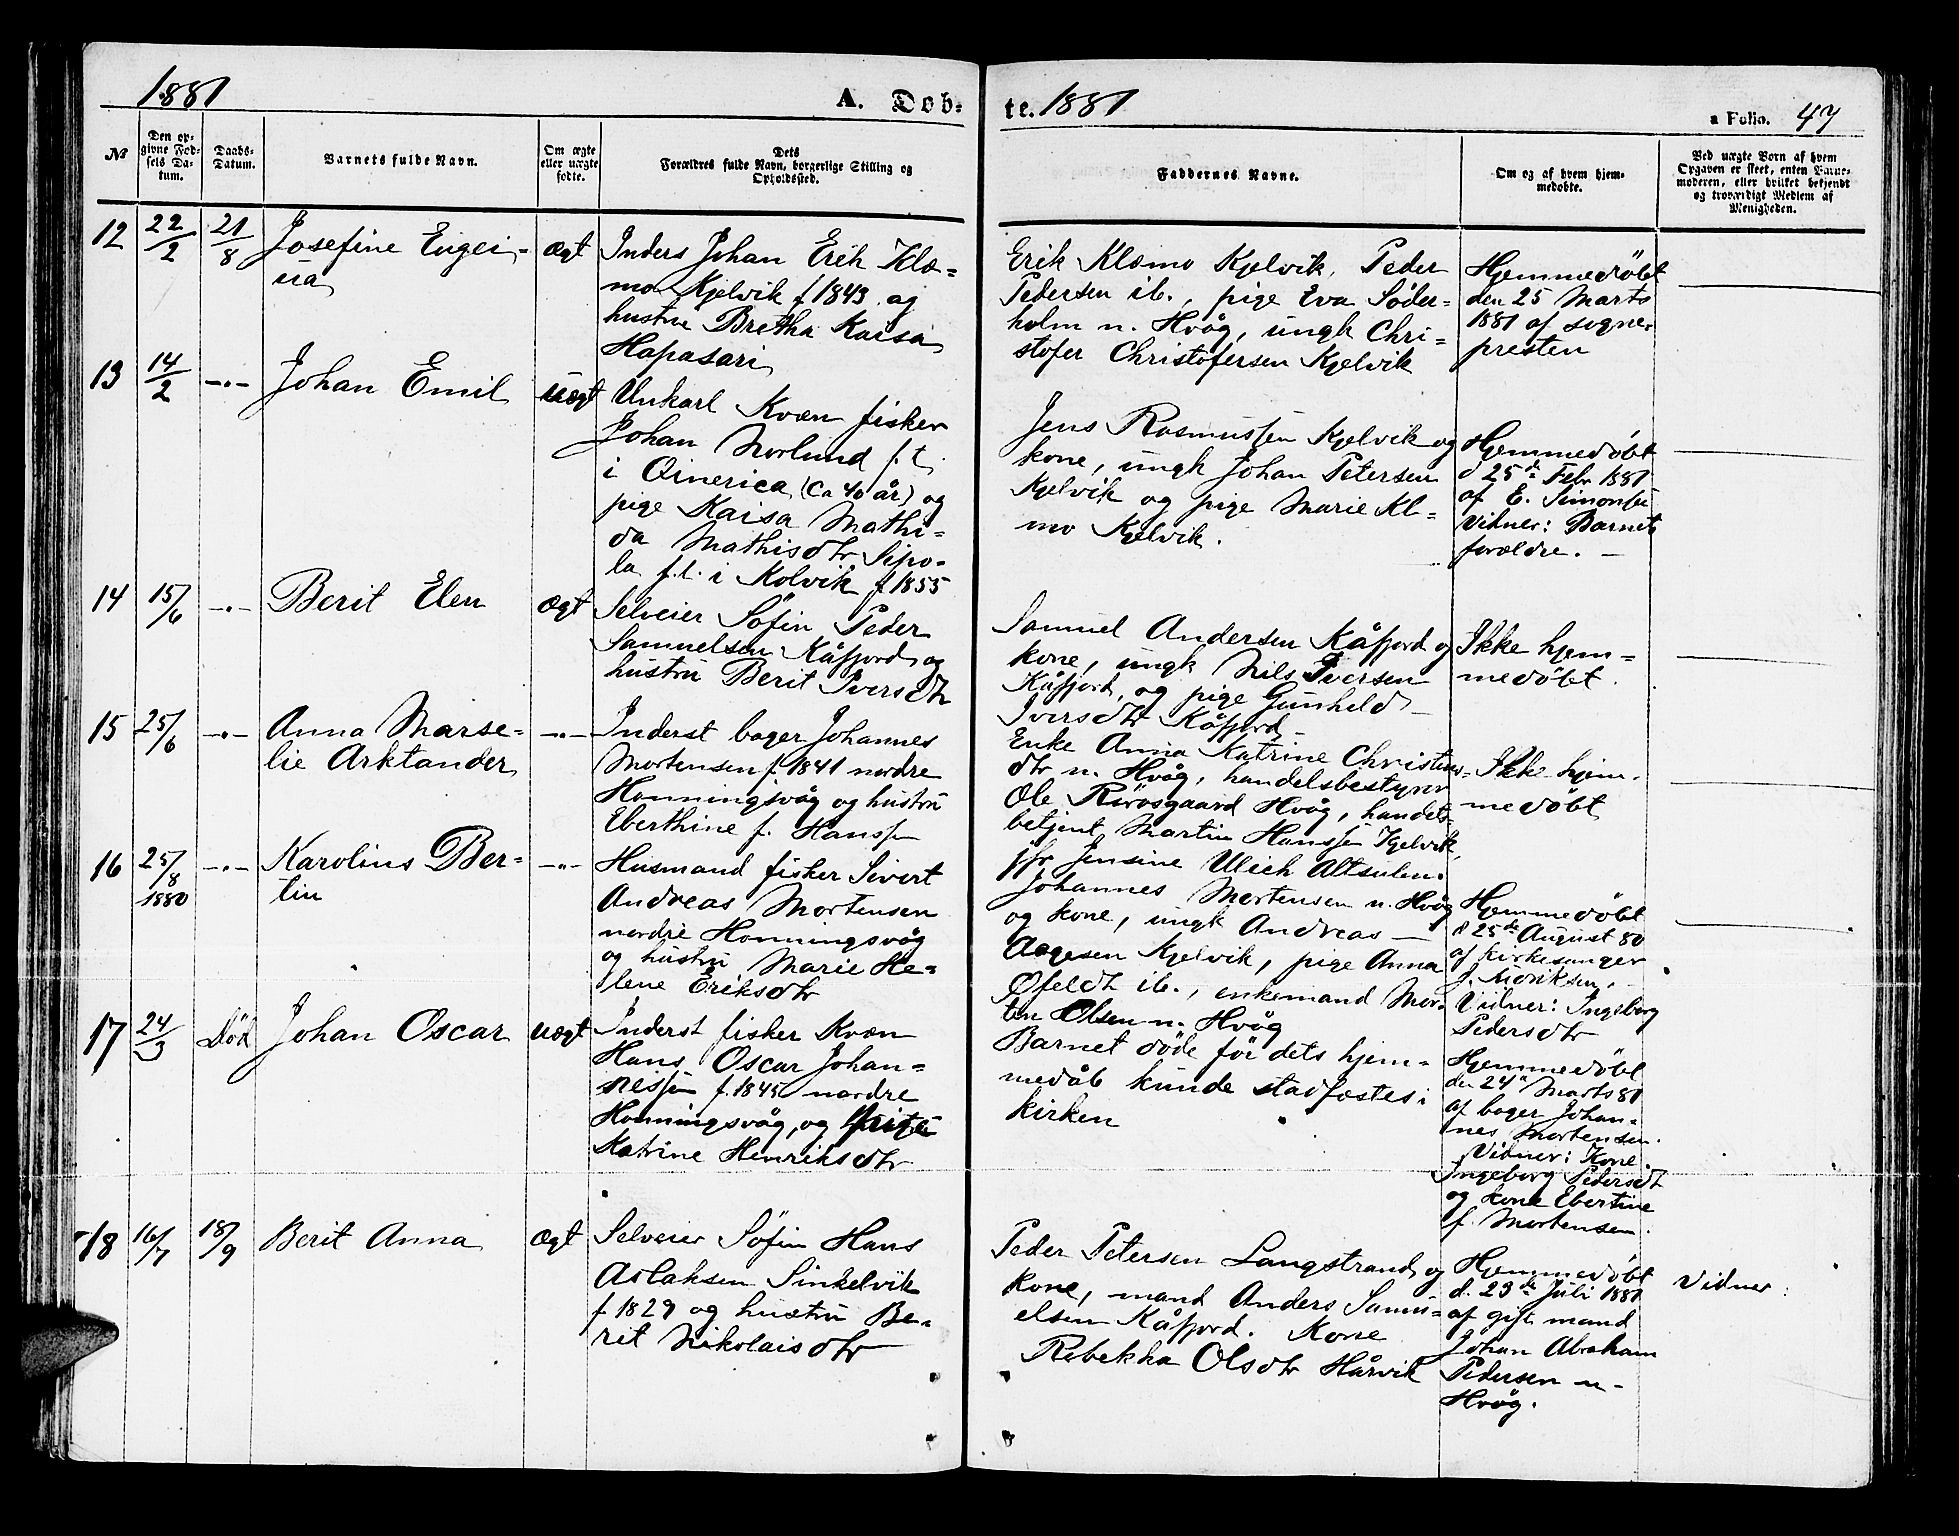 1881
A. Døb-
te. 1881
a Folio. 47
№
Den op-
givne Fød-
sels Da-
tum.
Daabs-
Datum.
Barnets fulde Navn.
Om ægte
eller uægte
fødte.
Dets
Forældres fulde Navn, borgerlige Stilling og
Opholdssted.
Faddernes Navne.
Om og af hvem hjem-
medøbte.
Ved uægte Børn af hvem
Opgaven er skeet, enten Barne-
moderen, eller hvilket bekjendt
og troværdigt Medlem af
Menigheden.
12 22/2 21/8 Josefine Eugei-
na
ægt
Inders Johan Erik Klæ-
mo Kjelvik f 1843 og
hustru Bretha Kaisa
Hapasari
Erik Klæmo Kjelvik, Peder
Pedersen ib., pige Eva Søder-
holm n. Hvåg, ungk Chri-
stofer Christofersen Kjelvik
Hjemmedöbt
den 25 Marts
1881 af sogne-
presten
13 14/2 -"- Johan Emil
uægt
Unkarl Kvæn fisker
Johan Norlund f. t.
i America (ca 40 år) og
pige Kaisa Mathi-
da Mathisdtr Sipo-
la f.t. i Kolvik f 1855
Jens Rasmussen Kjelvik og
kone, ungk Johan Petersen
Kjelvik og pige Marie Kl-
mo Kjelvik.
Hjemmedöbt
d 25de Febr 1881
af E. Simonsen
Vidner: Barnets
forældre. -
14 15/6 -"- Berit Elen
ægt
Selveier Söfin Peder
Samuelsen Kåfjord og
hustru Berit Iversdtr
Samuel Andersen Kåfjord og
kone, ungk Nils Iversen
Kåfjord, og pige Gunheld
Iversdtr Kåfjord
Ikke hjem-
medöbt.
15 25/6 -"- Anna Marse-
lie Arktander
-"-
Inderst bager Johannes
Mortensen f. 1841 nordre
Honningsvåg og hustru
Eberthine f. Hanssen
Enke Anna Katrine Christens-
dtr n. Hvåg, handelsbestyrer
Ole Rörosgaard Hvåg, handels-
betjent Martin Hanssen Kjelvik,
jfr Jensine Ulich Altsulen.
Ikke hjem-
medöbt
16 25/8 1880 -"- Karolius Ber-
tin
-"-
Husmand fisker Sivert
Andreas Mortensen
nordre Honningsvåg
og hustru Marie He-
lene Eriksdtr
Johannes Mortensen n. Hvåg
og kone, ungk Andreas
Aagesen Kjelvik, pige Anna
Øfeldt ib., enkemand Mor-
ten Olsen n. Hvåg
Hjemmedöbt
d 25de August 80
af kirkesanger
J. Kidriksen.
Vidner: Ingeborg
Pedersdtr
17 24/3 Död Johan Oscar
uægt
Inderst fisker Kvæn
Hans Oscar Johan-
nessen f. 1845 nordre
Honningsvåg, og pige
Katrine Henriksdtr
Barnet döde för dets hjem-
medåb kunde stadfæstes i
kirken
Hjemmedöbt
den 24de Marts 81
af bager Johan-
nes Mortensen.
Vidner: Kone
Ingeborg Pedersdt
og kone Ebertine
f. Mortensen.
18 16/7 18/9 Berit Anna
ægt
Selveier Söfin Hans
Aslaksen Sinkelvik
f 1829 og hustru Be-
rit Nikolaisdtr
Peder Petersen Langstrand og
kone, mand Anders Samu-
elsen Kåfjord. Kone
Rebekka Olsdtr Hårvik
Hjemmedöbt
d. 23de Juli 1881
af gift mand
Johan Abraham
Pedersen n-
Hvåg.
Vidner: